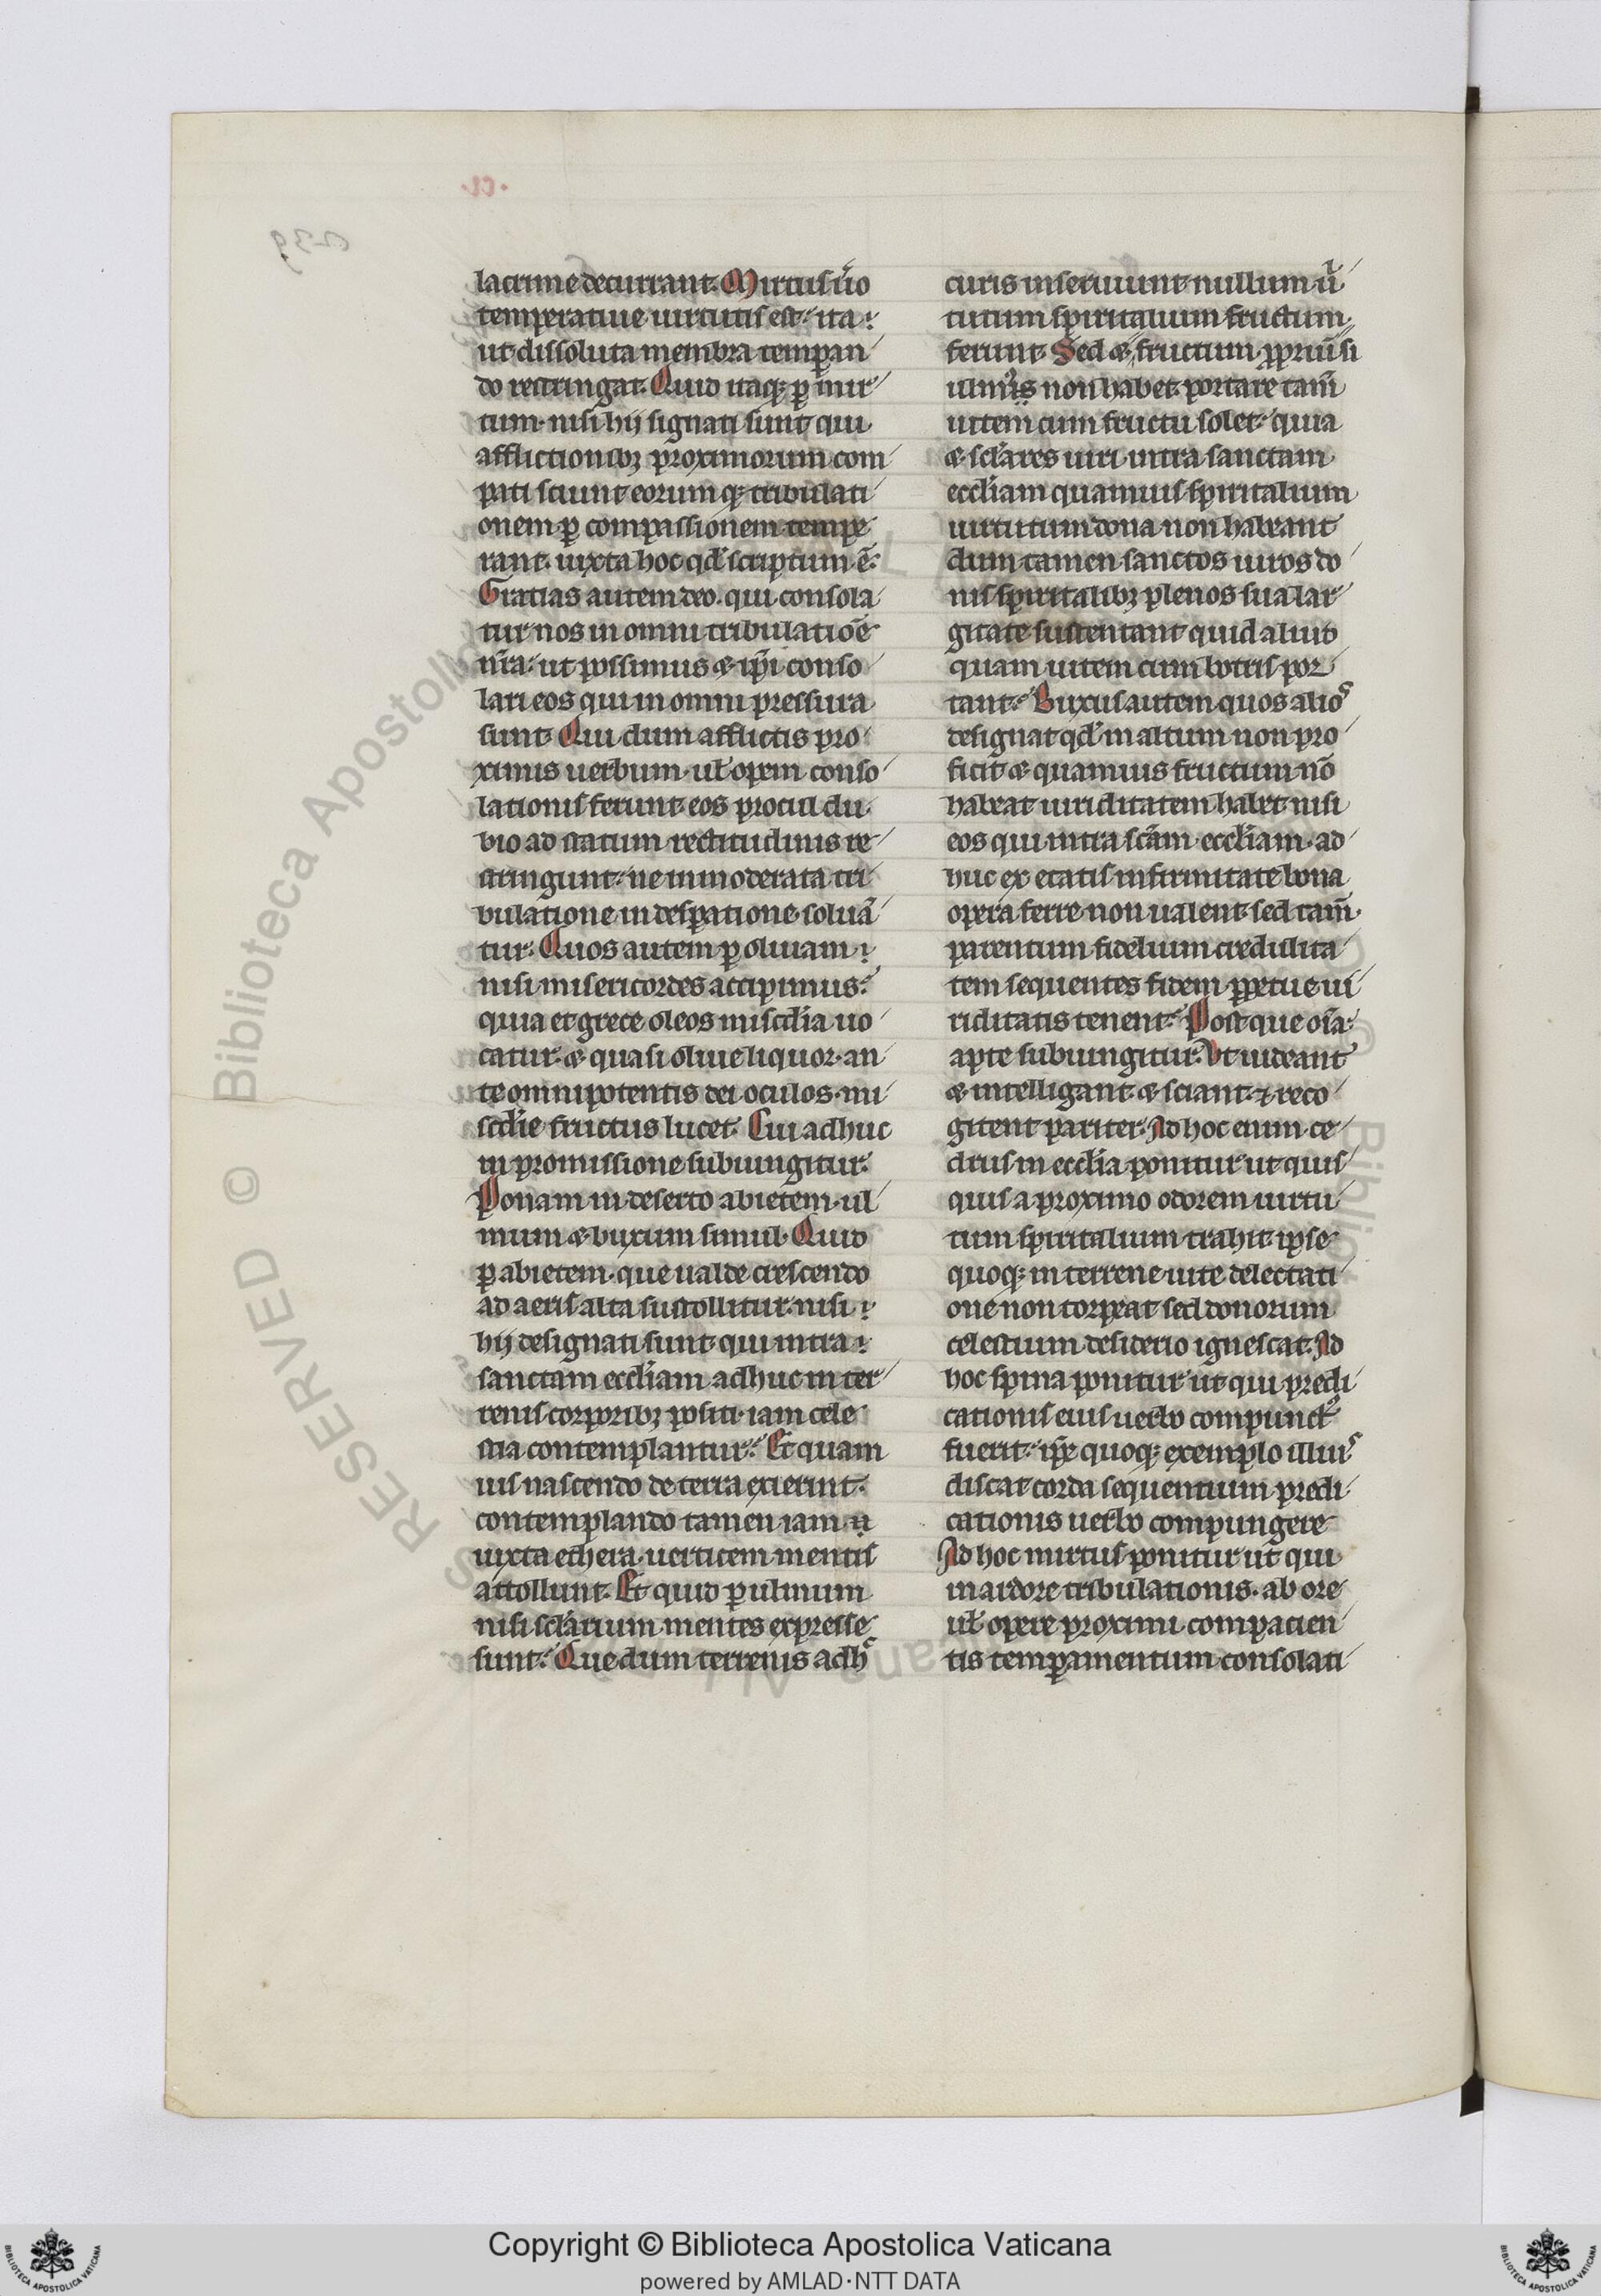 lacrime decurrant. Mirtus u͛o
temperatiue uirtutis est. ita
ut dissoluta membra temꝑan
do restringat. Quid itaqꝫ ꝑ mir
tum. nisi hij signati sunt qui
afflictionibꝫ proximorum com
pati sciunt eorum qꝫ tribulati
onem ꝑ compassionem tempe
rant. iuxta hoc qd̕ scriptum ē.
Gratias autem deo. qui consola
tur nos in omni tribulatiōe
nr̄a. ut possimus & ip̄i conso
lari eos qui in omni pressura
sunt. Qui dum afflictis pro
ximis uerbum. ul̕ opem conso
lationis ferunt eos procul du
bio ad statum rectitudinis re
stringunt. ne inmoderata tri
bulatione in desꝑatione soluā
tur. Quos autem ꝑ oliuam
nisi misericordes accipimus.
quia et grece oleos misc̕dia uo
catur. & quasi oliue liquor. an
te omnipotentis dei oculos. mi
sc̕die fructus lucet. Cui adhuc
in promissione subiungitur.
Ponam in deserto abietem. ul
mum & buxum simul. Quid
ꝑ abietem. que ualde crescendo
ad aeris alta sustollitur. nisi
hij designati sunt qui intra
sanctam eccl̕iam adhuc in ter
renis corporibꝫ positi. iam cele
stia contemplantur. Et quam
uis nascendo de terra exierint.
contemplando tamen iam
iuxta ethera. uerticem mentis
attollunt. Et quid ꝑ ulmum
nisi scl̕arium mentes expresse
sunt. Que dum terrenis adhᶜ
curis inseruiunt nullum uⁱ
tutum spiritalium fructum
ferunt. Sed & fructum ꝓpriū si
ulmus non habet. portare tam̄
uitem cum fructu solet. quia
& scl̕ares uiri intra sanctam
eccl̕iam quamuis spiritalium
uirtutum dona non habeant
dum tamen sanctos uiros do
nis spiritalibꝫ plenos sua lar
gitate sustentant quid aliud
quam uitem cum botris por
tant. Buxus autem quos alios
designat qd̕ in altum non pro
ficit & quamuis fructum nō
habeat uiriditatem habet nisi
eos qui intra sc̄am eccl̕iam. ad
huc ex etatis infirmitate bona
opera ferre non ualent. sed tam̄
parentum fidelium credulita
tem sequentes fidem ꝑpetue ui
riditatis tenent. Post que oīa.
apte subiungitur. Ut uideant
& intelligant. & sciant. ⁊ reco
gitent pariter. Ad hoc enim ce
drus in eccl̕ia ponitur ut quis
quis a proximo odorem uirtu
tum spiritalium trahit. ipse
quoqꝫ in terrene uite delectati
one non torpeat sed donorum
celestium desiderio ignescat. Ad
hoc spina ponitur ut qui predi
cationis eius uerbo compunctꝰ
fuerit. ip̄e quoqꝫ exemplo illius
discat corda sequentium predi
cationis uerbo compungere
Ad hoc mirtus ponitur ut qui
in ardore tribulationis. ab ore
ul̕ opere proximi compacien
tis temꝑamentum consolati
Copyright © Biblioteca Apostolica Vaticana
powered by AMLAD·NTT DATA